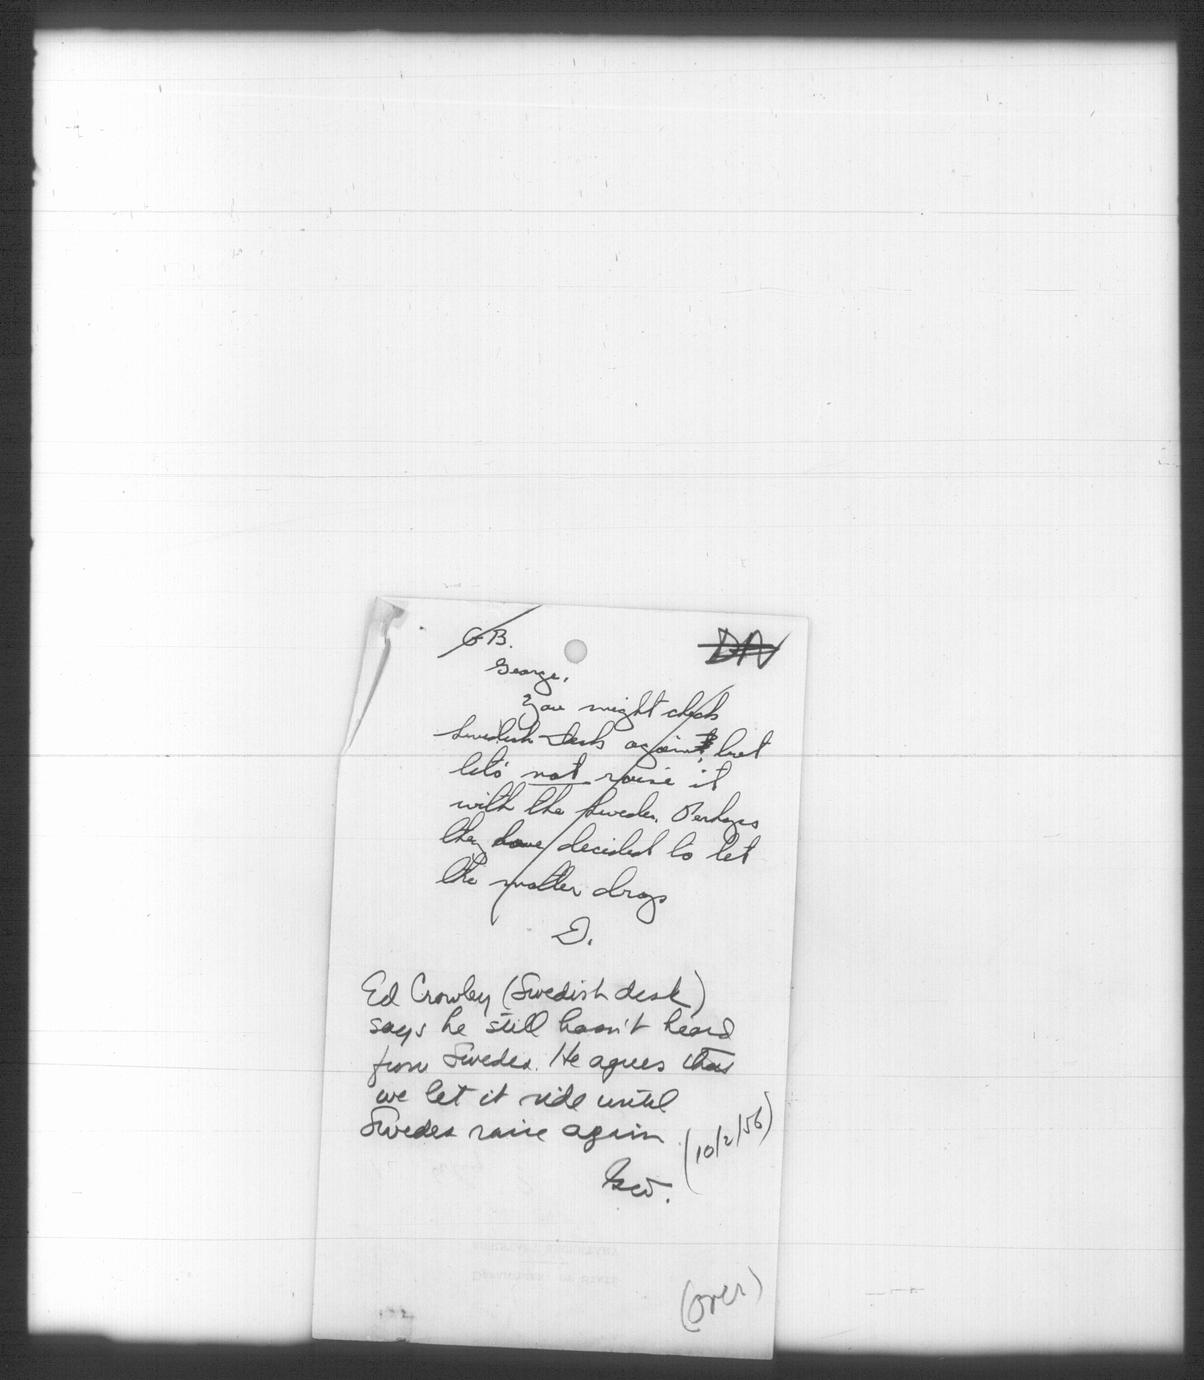 GB.
DN
George,
You might check
Swedish Desk again, but
let's not raise it
with the Swedes. Perhaps
they have decided to let
the matter drop
D.
Ed Crowley (Swedish desk)
says he still hasn't heard
from Swedes. He agrees that
we let it ride until
Swedes raise again
(10/2/56)
Geo.
(over)
DEPARTMENT OF STATE